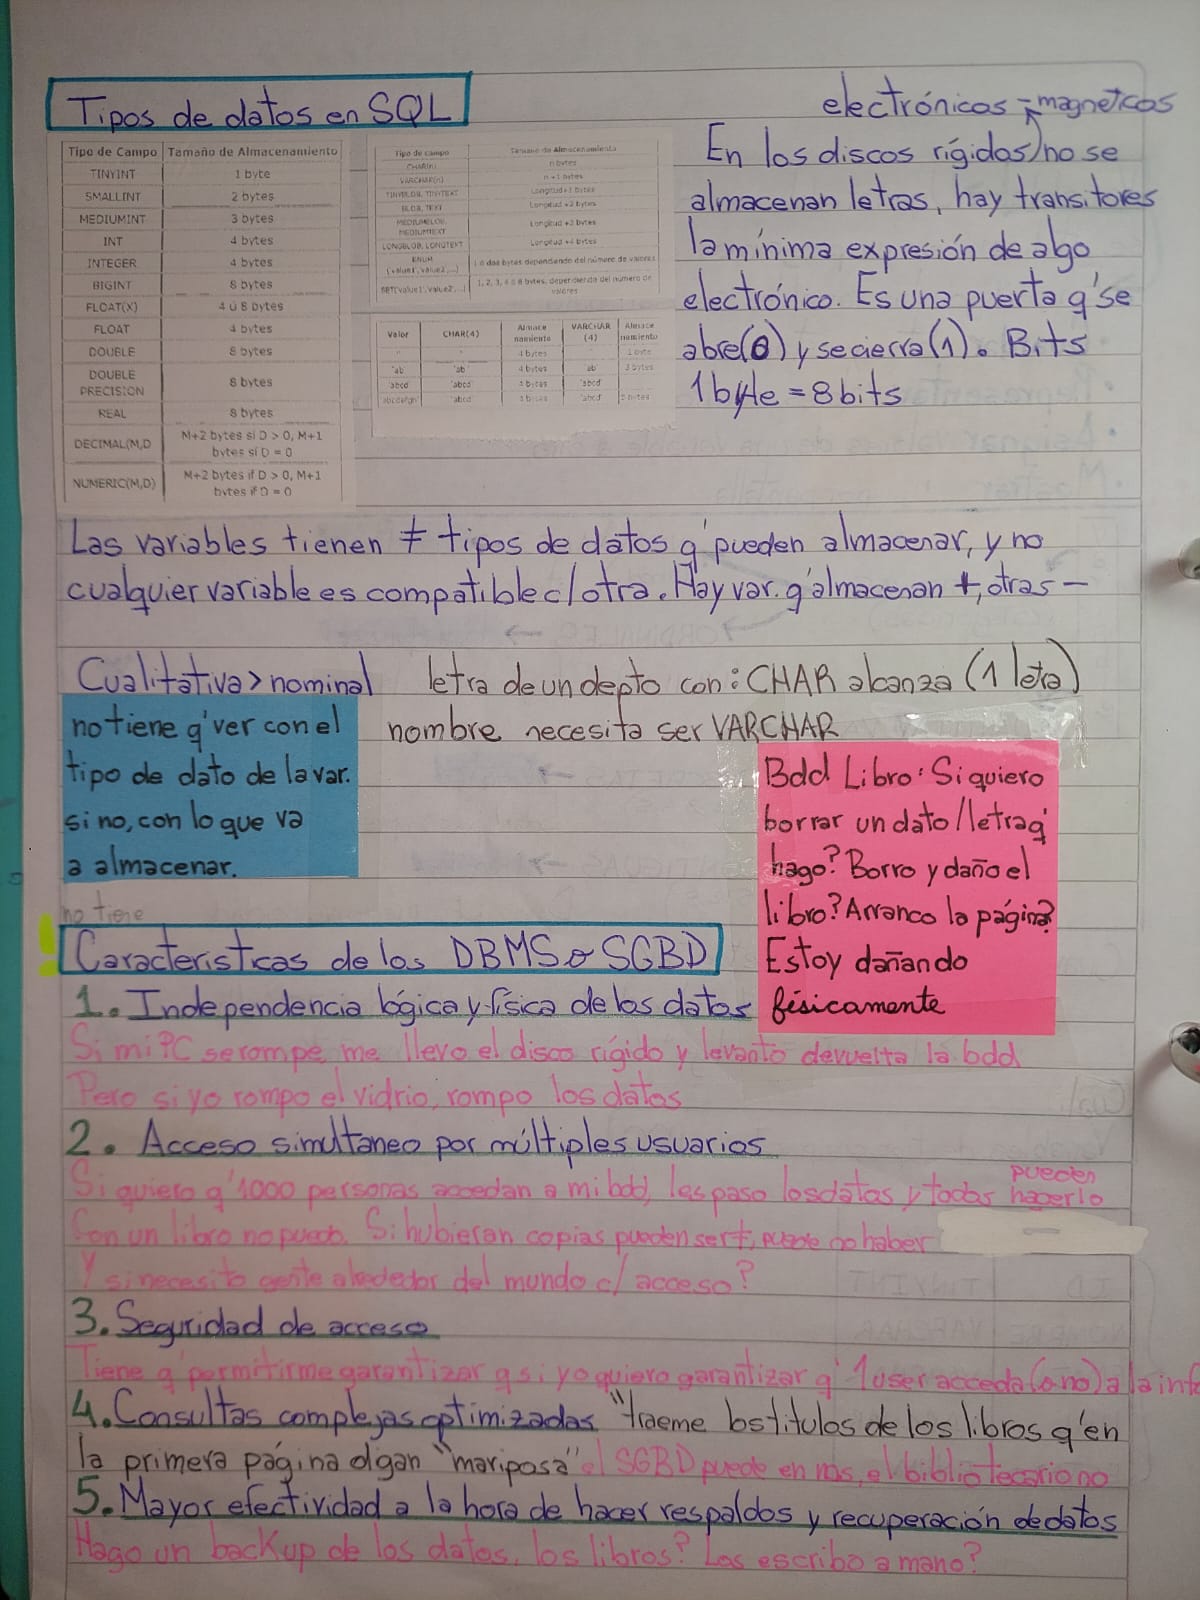 Tipos de datos en SQL
Tipo de Campo Tamaño de Almacenamiento
TINYINT 1 byte
SMALLINT 2 bytes
MEDIUMINT 3 bytes
INT 4 bytes
INTEGER 4 bytes
BIGINT 8 bytes
FLOAT(X) 4 ú 8 bytes
FLOAT 4 bytes
DOUBLE 8 bytes
DOUBLE
PRECISION 8 bytes
REAL 8 bytes
DECIMAL(M,D M+2 bytes sí D > 0, M+1
bytes sí D = 0
NUMERIC(M,D) M+2 bytes if D > 0, M+1
bytes if D = 0
Tipo de campo Tamaño de Almacenamiento
CHAR(n) n bytes
VARCHAR(n) n +1 bytes
TINYBLOB, TINYTEXT Longitud+1 bytes
BLOB, TEXT Longitud +2 bytes
MEDIUMBLOB,
MEDIUMTEXT Longitud +3 bytes
LONGBLOB, LONGTEXT Longitud +4 bytes
ENUM
('value1','value2',...) 1 ó dos bytes dependiendo del número de valores
SET('value1','value2',...) 1, 2, 3, 4 ó 8 bytes, dependiendo del número de
valores
Valor CHAR(4) Almace
namiento VARCHAR
(4) Almace
namiento
'' '' 4 bytes '' 1 byte
'ab' 'ab' 4 bytes 'ab' 3 bytes
'abcd' 'abcd' 4 bytes 'abcd'
'abcdefgh' 'abcd' 4 bytes 'abcd' 5 bytes
electrónicos - magneticos
En los discos rígidos no se
almacenan letras, hay transitores
la mínima expresión de algo
electrónico. Es una puerta q' se
abre(0) y se cierra (1). Bits
1 byte = 8 bits
Las variables tienen ≠ tipos de datos q' pueden almacenar, y no
cualquier variable es compatible c/ otra. Hay var. q' almacenan +, otras -
Cualitativa > nominal letra de un depto con: CHAR alcanza (1 letra)
nombre necesita ser VARCHAR
no tiene q' ver con el
tipo de dato de la var.
si no, con lo que va
a almacenar.
Bdd Libro: Si quiero
borrar un dato/letra q'
hago? Borro y daño el
libro? Arranco la página?
Estoy dañando
físicamente
no tiene
! Caracteristicas de los DBMS o SGBD
1. Independencia lógica y física de los datos
Si mi PC se rompe, me llevo el disco rígido y levanto devuelta la bdd
Pero si yo rompo el vidrio, rompo los datos
2. Acceso simultaneo por múltiples usuarios
Si quiero q' 1000 personas accedan a mi bdd, les paso los datos y todas pueden hacerlo
Con un libro no puedo. Si hubieran copias pueden ser +, puede no haber
Y si necesito gente alrededor del mundo c/ acceso?
3. Seguridad de acceso
Tiene q' permitirme garantizar q si yo quiero garantizar q' 1 user acceda (o no) a la info
4. Consultas complejas optimizadas "traeme los titulos de los libros q' en
la primera página digan "mariposa" el SGBD puede en ms, el bibliotecario no
5. Mayor efectividad a la hora de hacer respaldos y recuperación de datos
Hago un backup de los datos, los libros? Los escribo a mano?